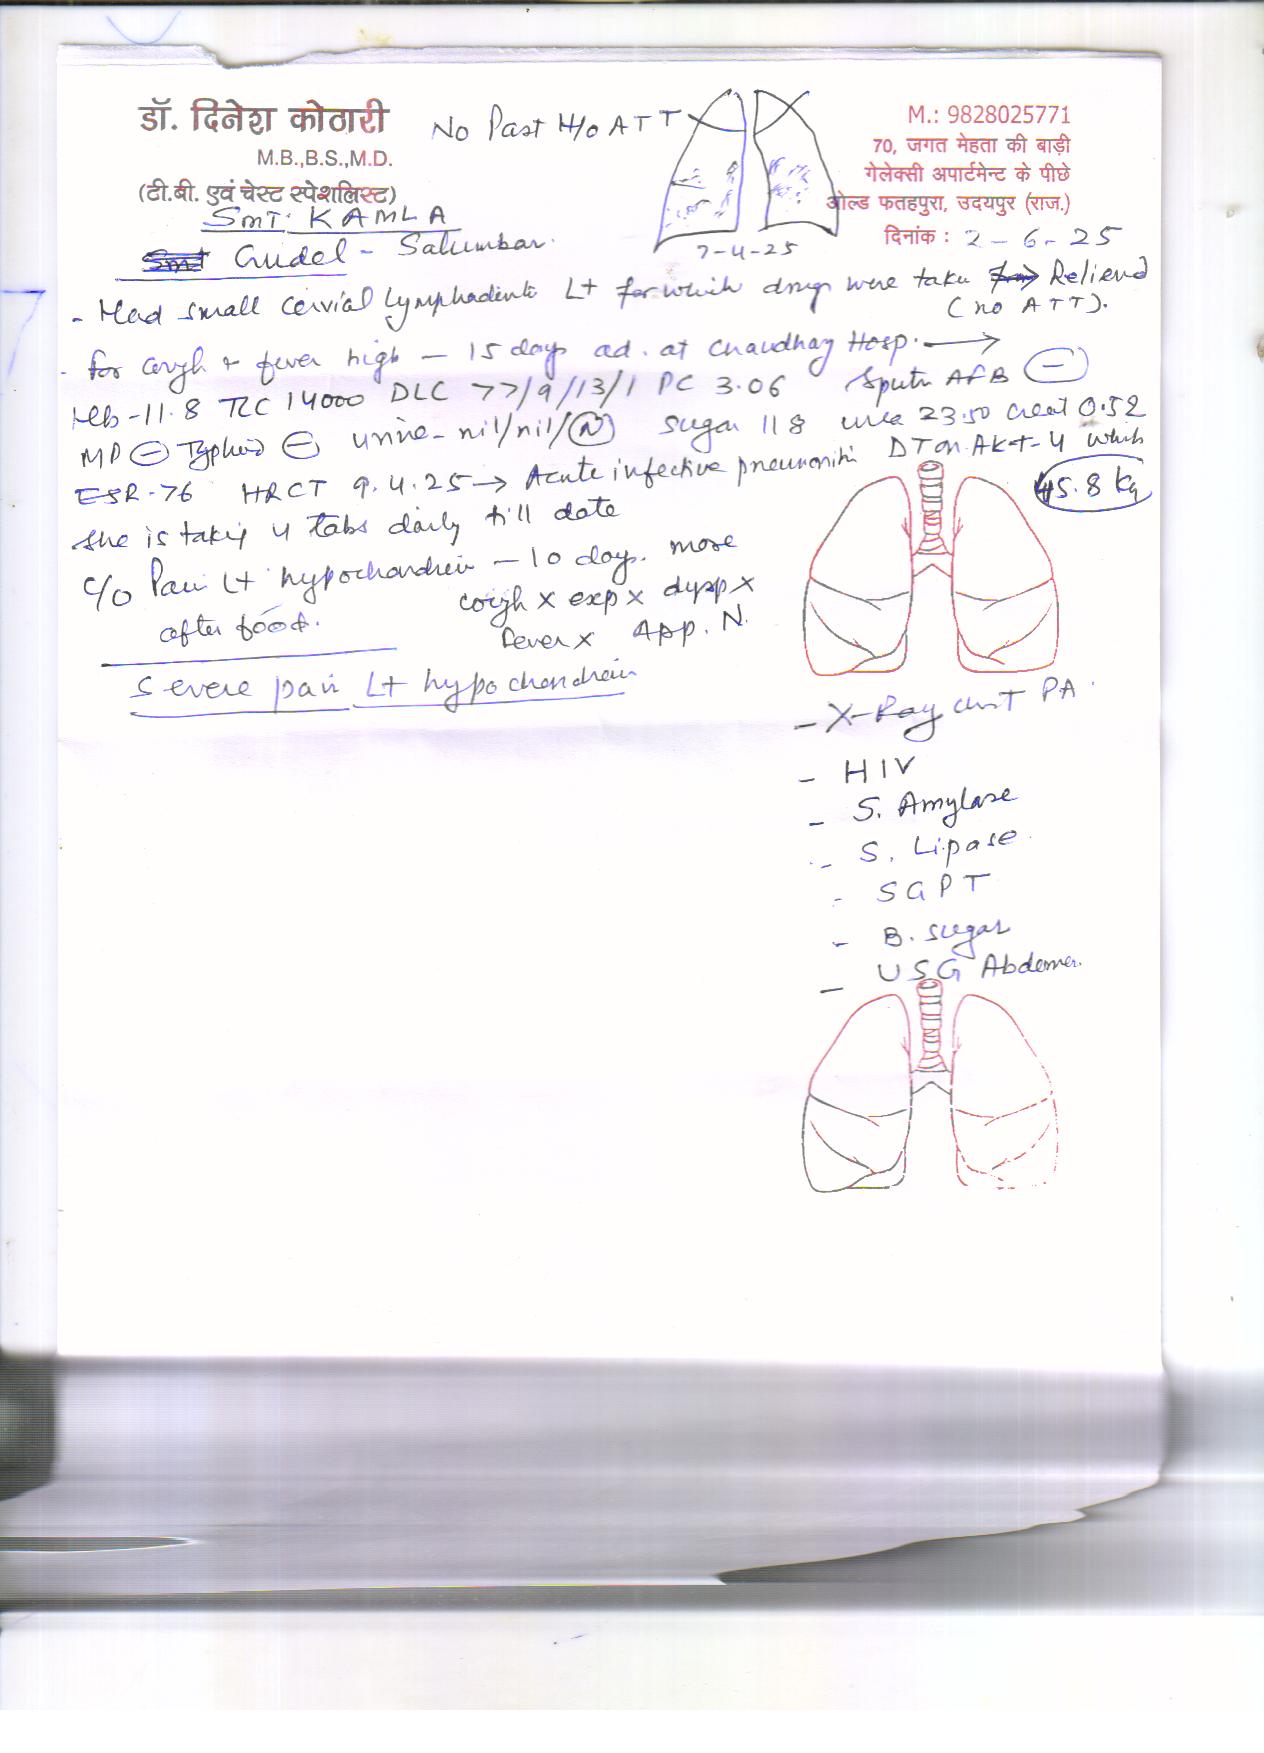 डॉ. दिनेश कोठारी
M.B.,B.S.,M.D.
(टी.बी. एवं चेस्ट स्पेशलिस्ट)
No Past H/o ATT
7-4-25
M.: 9828025771
70, जगत मेहता की बाड़ी
गेलेक्सी अपार्टमेन्ट के पीछे
ओल्ड फतहपुरा, उदयपुर (राज.)
दिनांक : 2-6-25
Smt. KAMLA
Gudel - Salumbar.
- Had small cervial Lymphadenitis Lt for which drugs were taken → Relieved
(no ATT).
- for cough & fever high - 15 days ad. at Chaudhary Hosp. →
Hb-11.8 TLC 14000 DLC 77/9/13/1 PC 3.06 Sputum AFB (-)
MP (-) Typhoid (-) urine- nil/nil/(N) sugar 118 urea 23.50 creat 0.52
ESR-76 HRCT 9.4.25 → Acute infective pneumonitis DT on AKT-4 which
she is taking 4 tabs daily till date
45.8 kg
c/o Pain Lt hypochondrein - 10 days. more
after food.
cough x exp x dysp x
fever x App. N.
Severe pain Lt hypochondrein
- X-Ray chest PA.
- HIV
- S. Amylase
- S. Lipase
- SGPT
- B. sugar
- USG Abdomen.